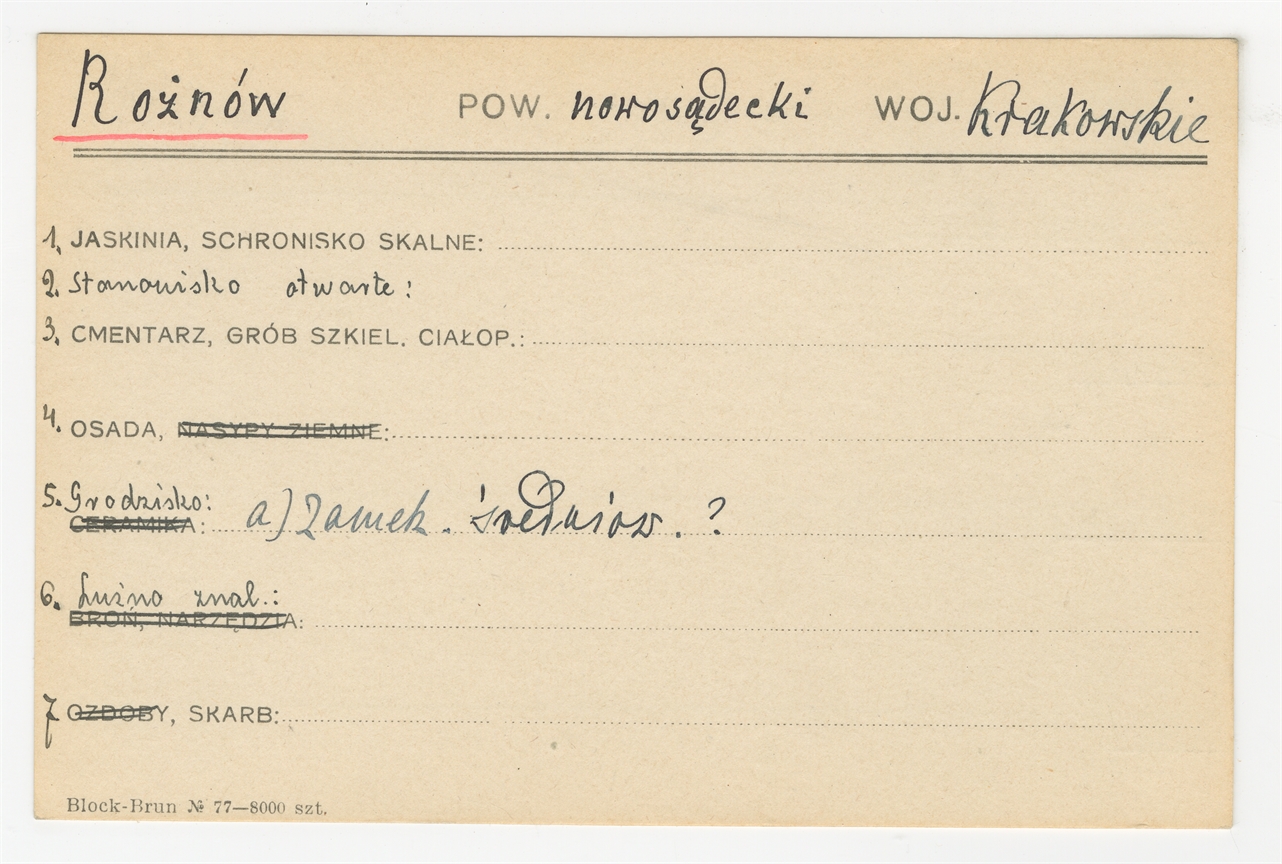 Rożnów POW. nowosądecki WOJ. Krakowskie
1. JASKINIA, SCHRONISKO SKALNE:
2. Stanowisko otwarte:
3. CMENTARZ, GRÓB SZKIEL. CIAŁOP.:
4. OSADA, NASYPY ZIEMNE:
5. Grodzisko:
CERAMIKA: a) Zamek. średniow. ?
6. Luźno znal.:
BROŃ, NARZĘDZIA:
7 OZDOBY, SKARB:
Block-Brun № 77—8000 szt.